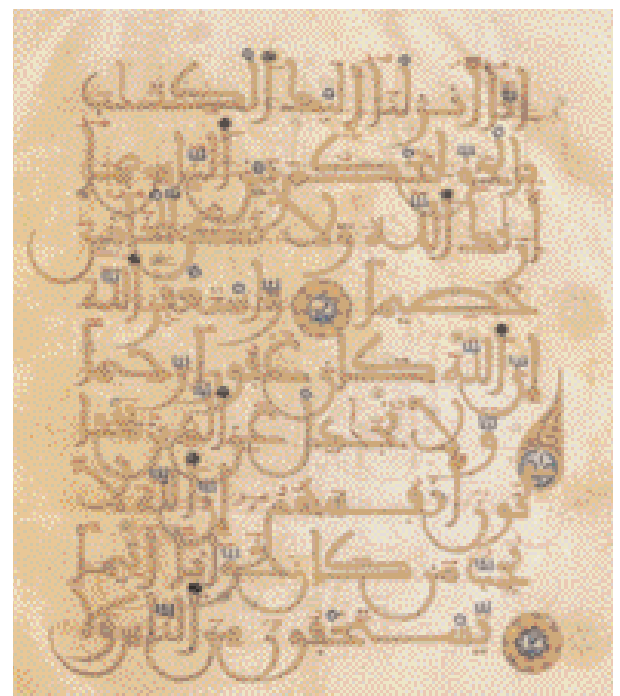 انا انزلنا اليك الكتب
بالحق لتحكم بين الناس بما
اريك الله ولا تكن للخائنين
خصيما واستغفر الله
ان الله كان غفورا رحيما
ولا تجدل عن الذين يختا
نون انفسهم ان الله لا
يحب من كان خوانا اثيما
يستخفون من الناس ولا